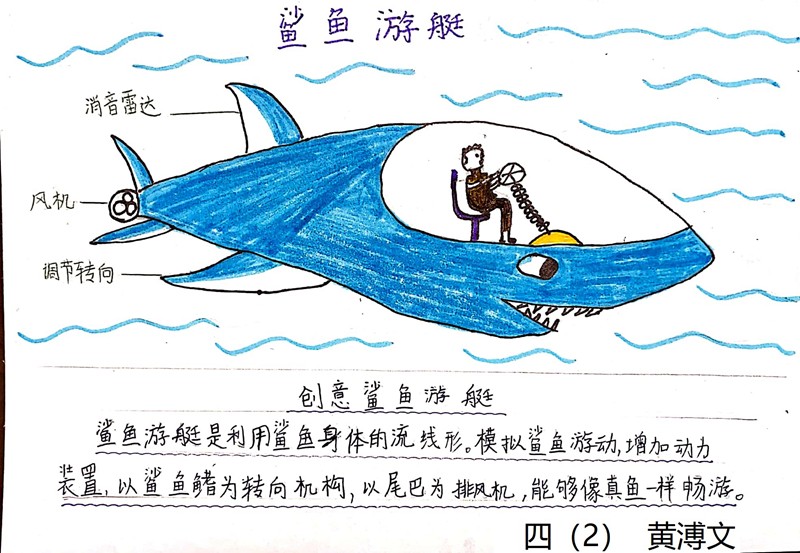 鲨鱼游艇
消音雷达
风机
调节转向
创意鲨鱼游艇
鲨鱼游艇是利用鲨鱼身体的流线形。模拟鲨鱼游动,增加动力
装置,以鲨鱼鳍为转向机构,以尾巴为排风机,能够像真鱼一样畅游。
四（2） 黄溥文